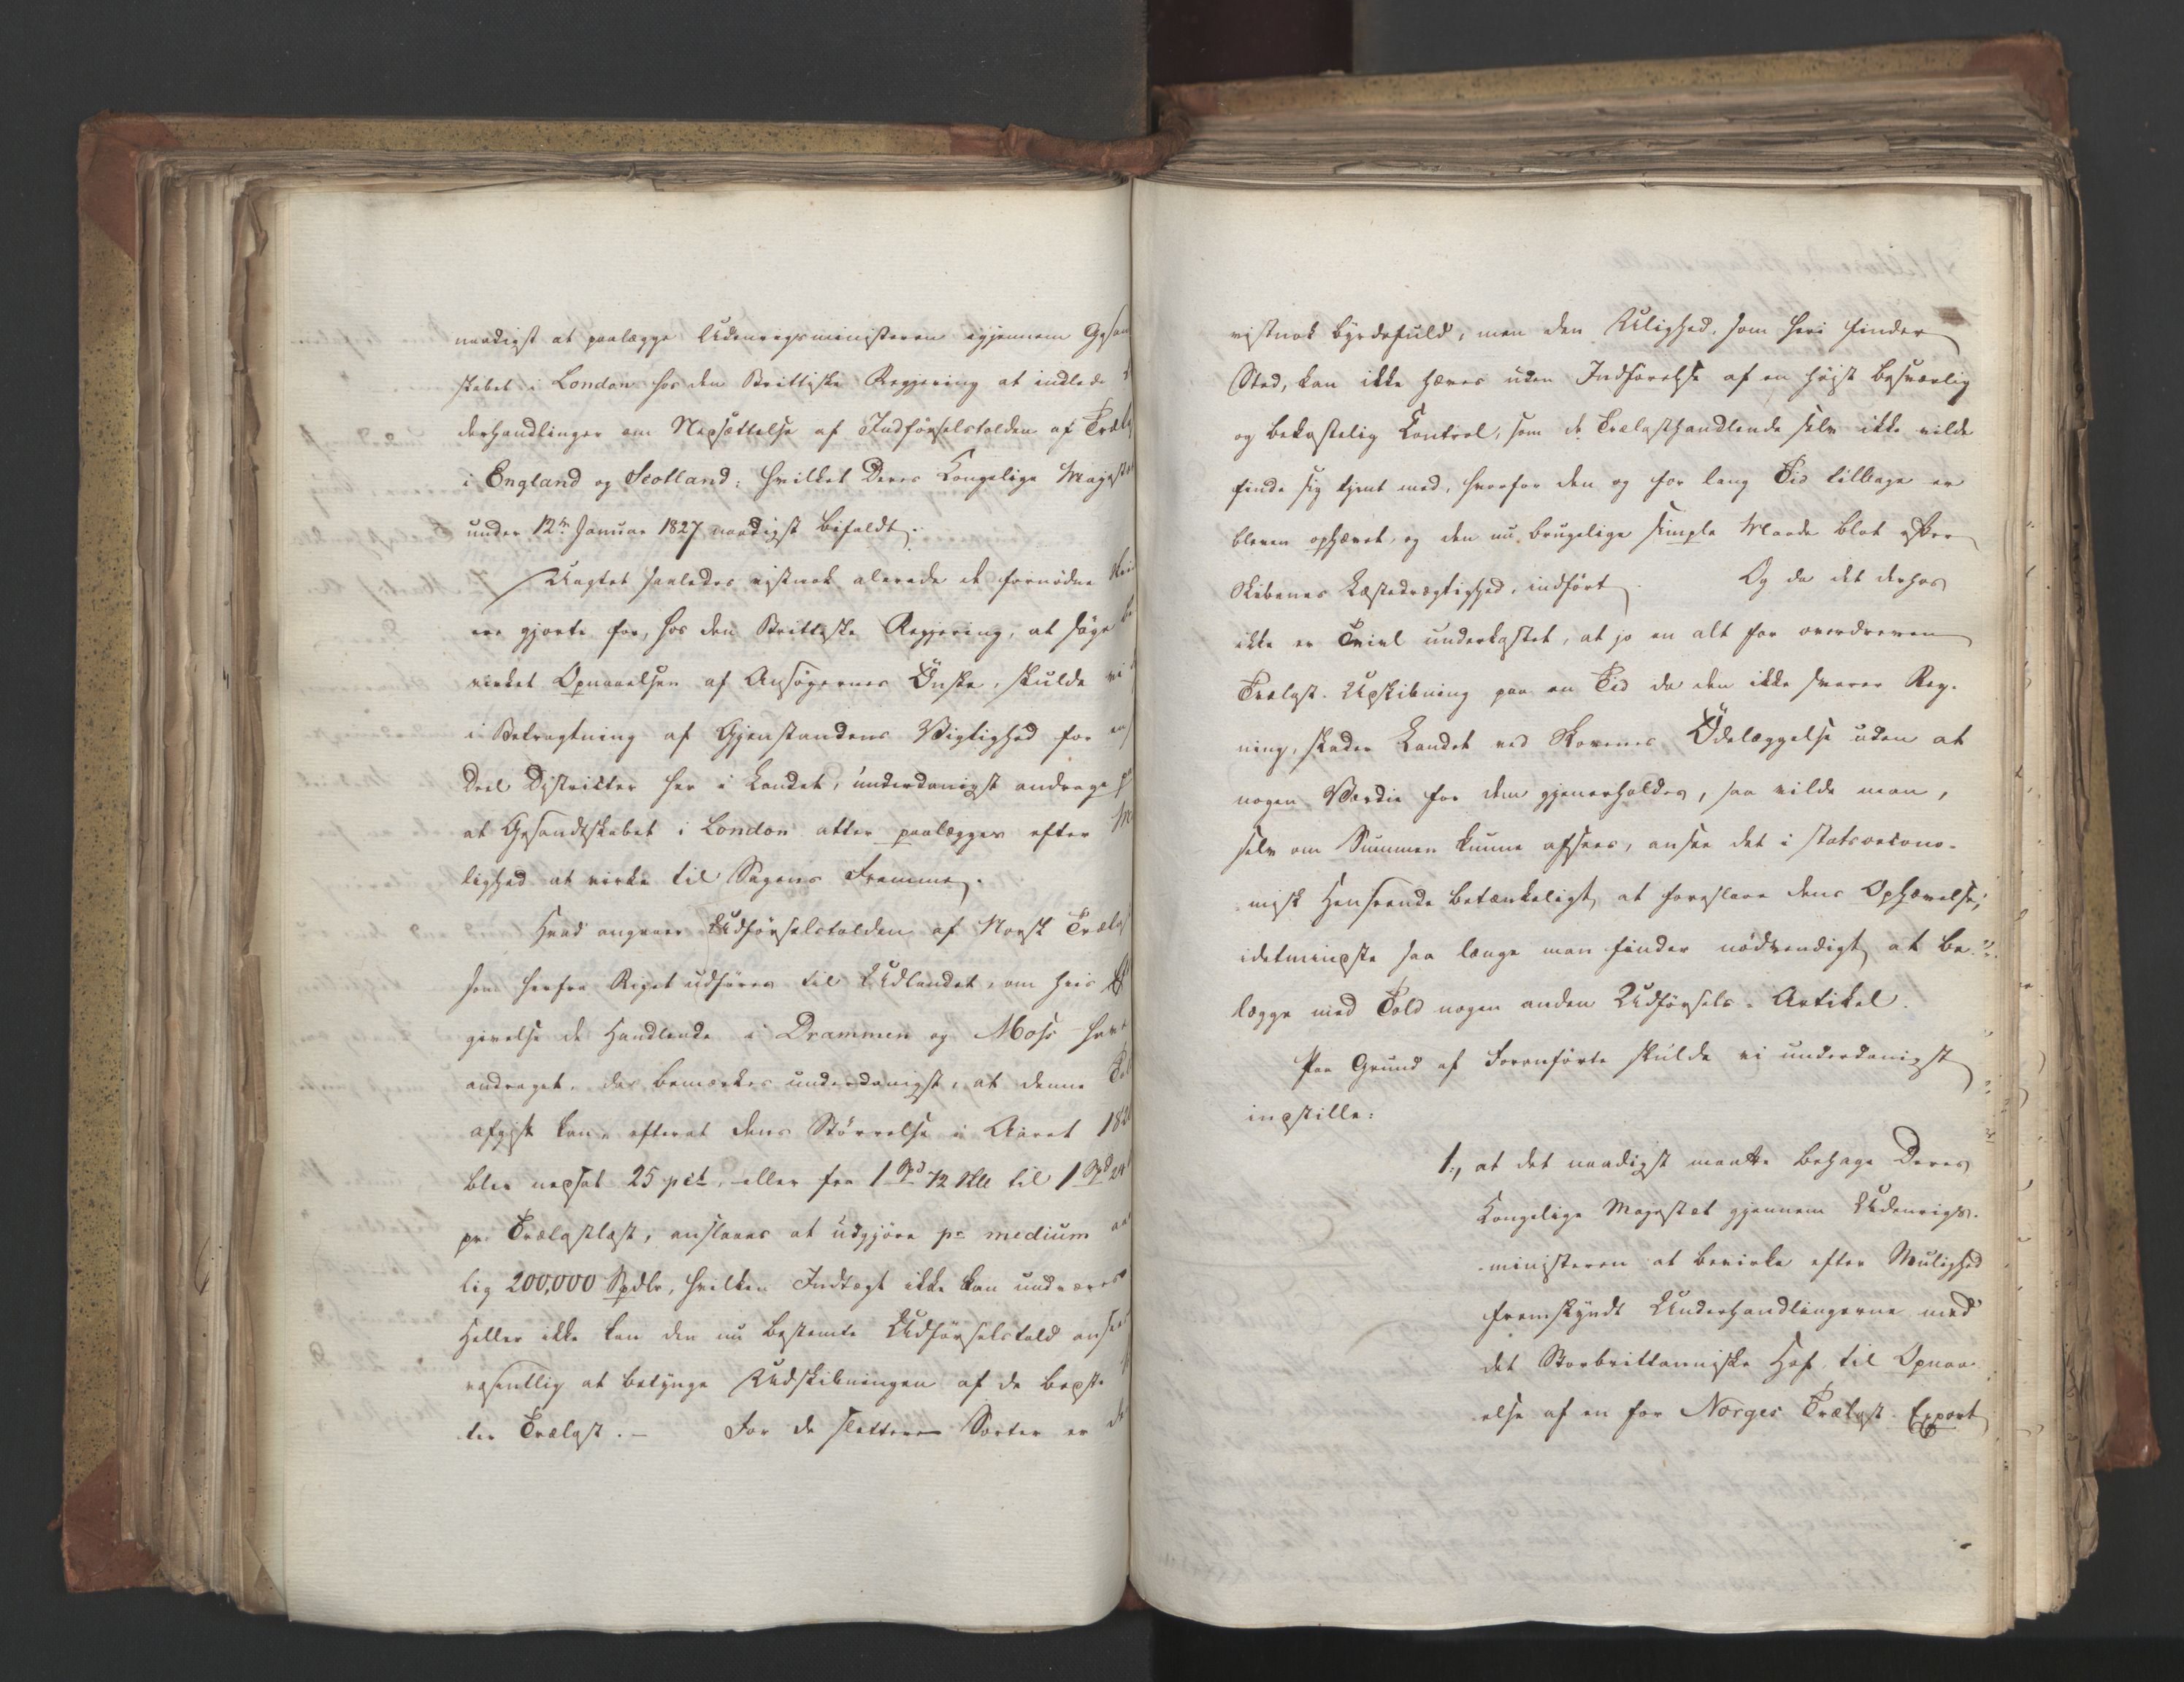 naadigst at paalægge Udenrigsministeren igjennem Gesan
skabet i London hos den Brittiske Regjering at indlede
derhandlinger om Nedsættelse af Indførselstolden af Træla
i England og Scotland; hvilket Deres Kongelige Majestæ
under 12te Januar 1827 naadigst bifaldt.
Uagtet saaledes vistnok alerede de fornødne Skri
ere gjorte for, hos den Brittiske Regjering, at søge be
virket Opnaaelsen af Ansøgernes Ønske, skulde vi
i Betragtning af Gjenstandens Vigtighed for en
Deel Districter her i Landet, underdanigst andrage p
at Gesandtskabet i London atter paalægges efter M
lighed at virke til Sagens Fremme.
Hvad angaaer Udførselstolden af Norsk Trælas
som herfra Riget udføres til Udlandet, om hvis Ef
givelse de Handlende i Drammen og Moss have
andraget, da bemærkes underdanigst, at denne Tol
afgift kan, efterat dens Størrelse i Aaret 182
blev nedsat 25 pct, eller fra 1 Spd 72 sk til 1 Spd 24
pr. Trælastlæst, anslaaes at udgjøre pr medium aa
lig 200,000 Spdlr, hvilken Indtægt ikke kan undværes
Heller ikke kan den nu bestemte Udførselstold anseес
væsentlig at betynge Udskibningen af de bedste
ter Trælast. – For de slettere Sorter er de
vistnok byrdefuld; men den Ulighed, som heri finder
Sted, kan ikke hæves uden Indførelse af en høist besværlig
og bekostelig Control, som de Trælasthandlende selv ikke vilde
finde sig tjent med, hvorfor den og for lang Tid tilbage er
bleven ophævet, og den nu brugelige simple Maade blot efter
Skibenes Læstedrægtighed, indført. Og da det derhos
ikke er Tvivl underkastet, at jo en alt for overdreven
Trælast-Udskibning paa en Tid da den ikke svarer Reg-
ning, skader Landet ved Skovenes Ødelæggelse uden at
nogen Værdie for dem gjenerholdes, saa vilde man,
selv om Summen kunne afsees, ansee det i statsoecono-
misk Henseende betænkeligt at foreslaae dens Ophævelse,
idetmindste saa længe man finder nødvendigt at be-
lægge med Told nogen anden Udførsels-Artikel.
Paa Grund af Foranførte skulde vi underdanigst
indstille:
1., at det naadigst maatte behage Deres
Kongelige Majestæt gjennem Udenrigs-
ministeren at bevirke efter Mulighed
fremskyndt Underhandlingerne med
det Storbrittanniske Hof, til Opnaa-
else af en for Norges Trælast-Export